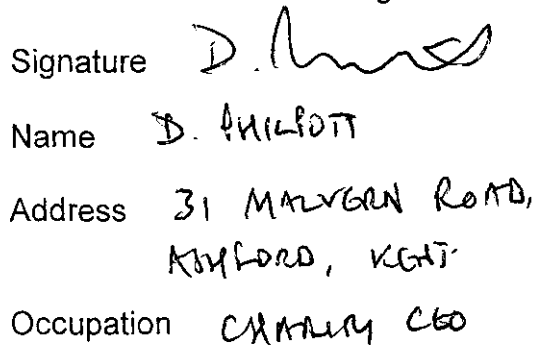 Signature D.
Name D. PHILPOTT
Address 31 MALVERN ROAD,
ASHFORD, KENT
Occupation CHARITY CEO